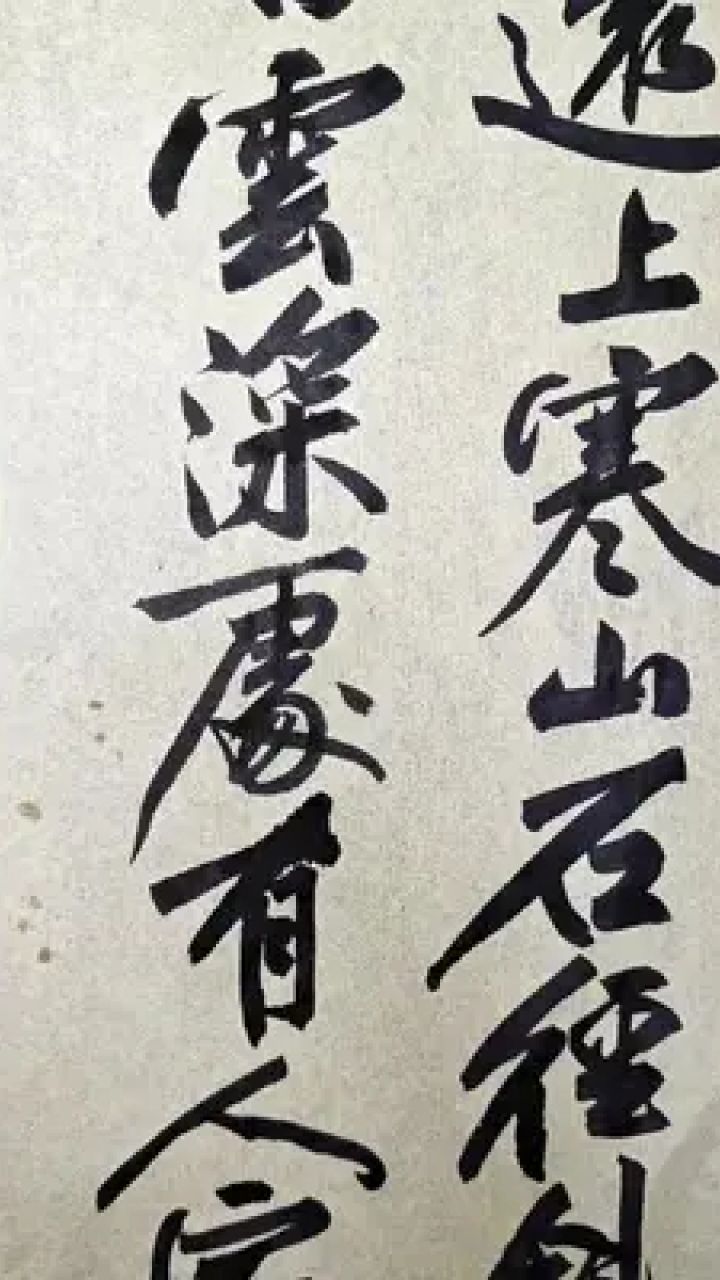 遠上寒山石徑斜
雲深處有人家